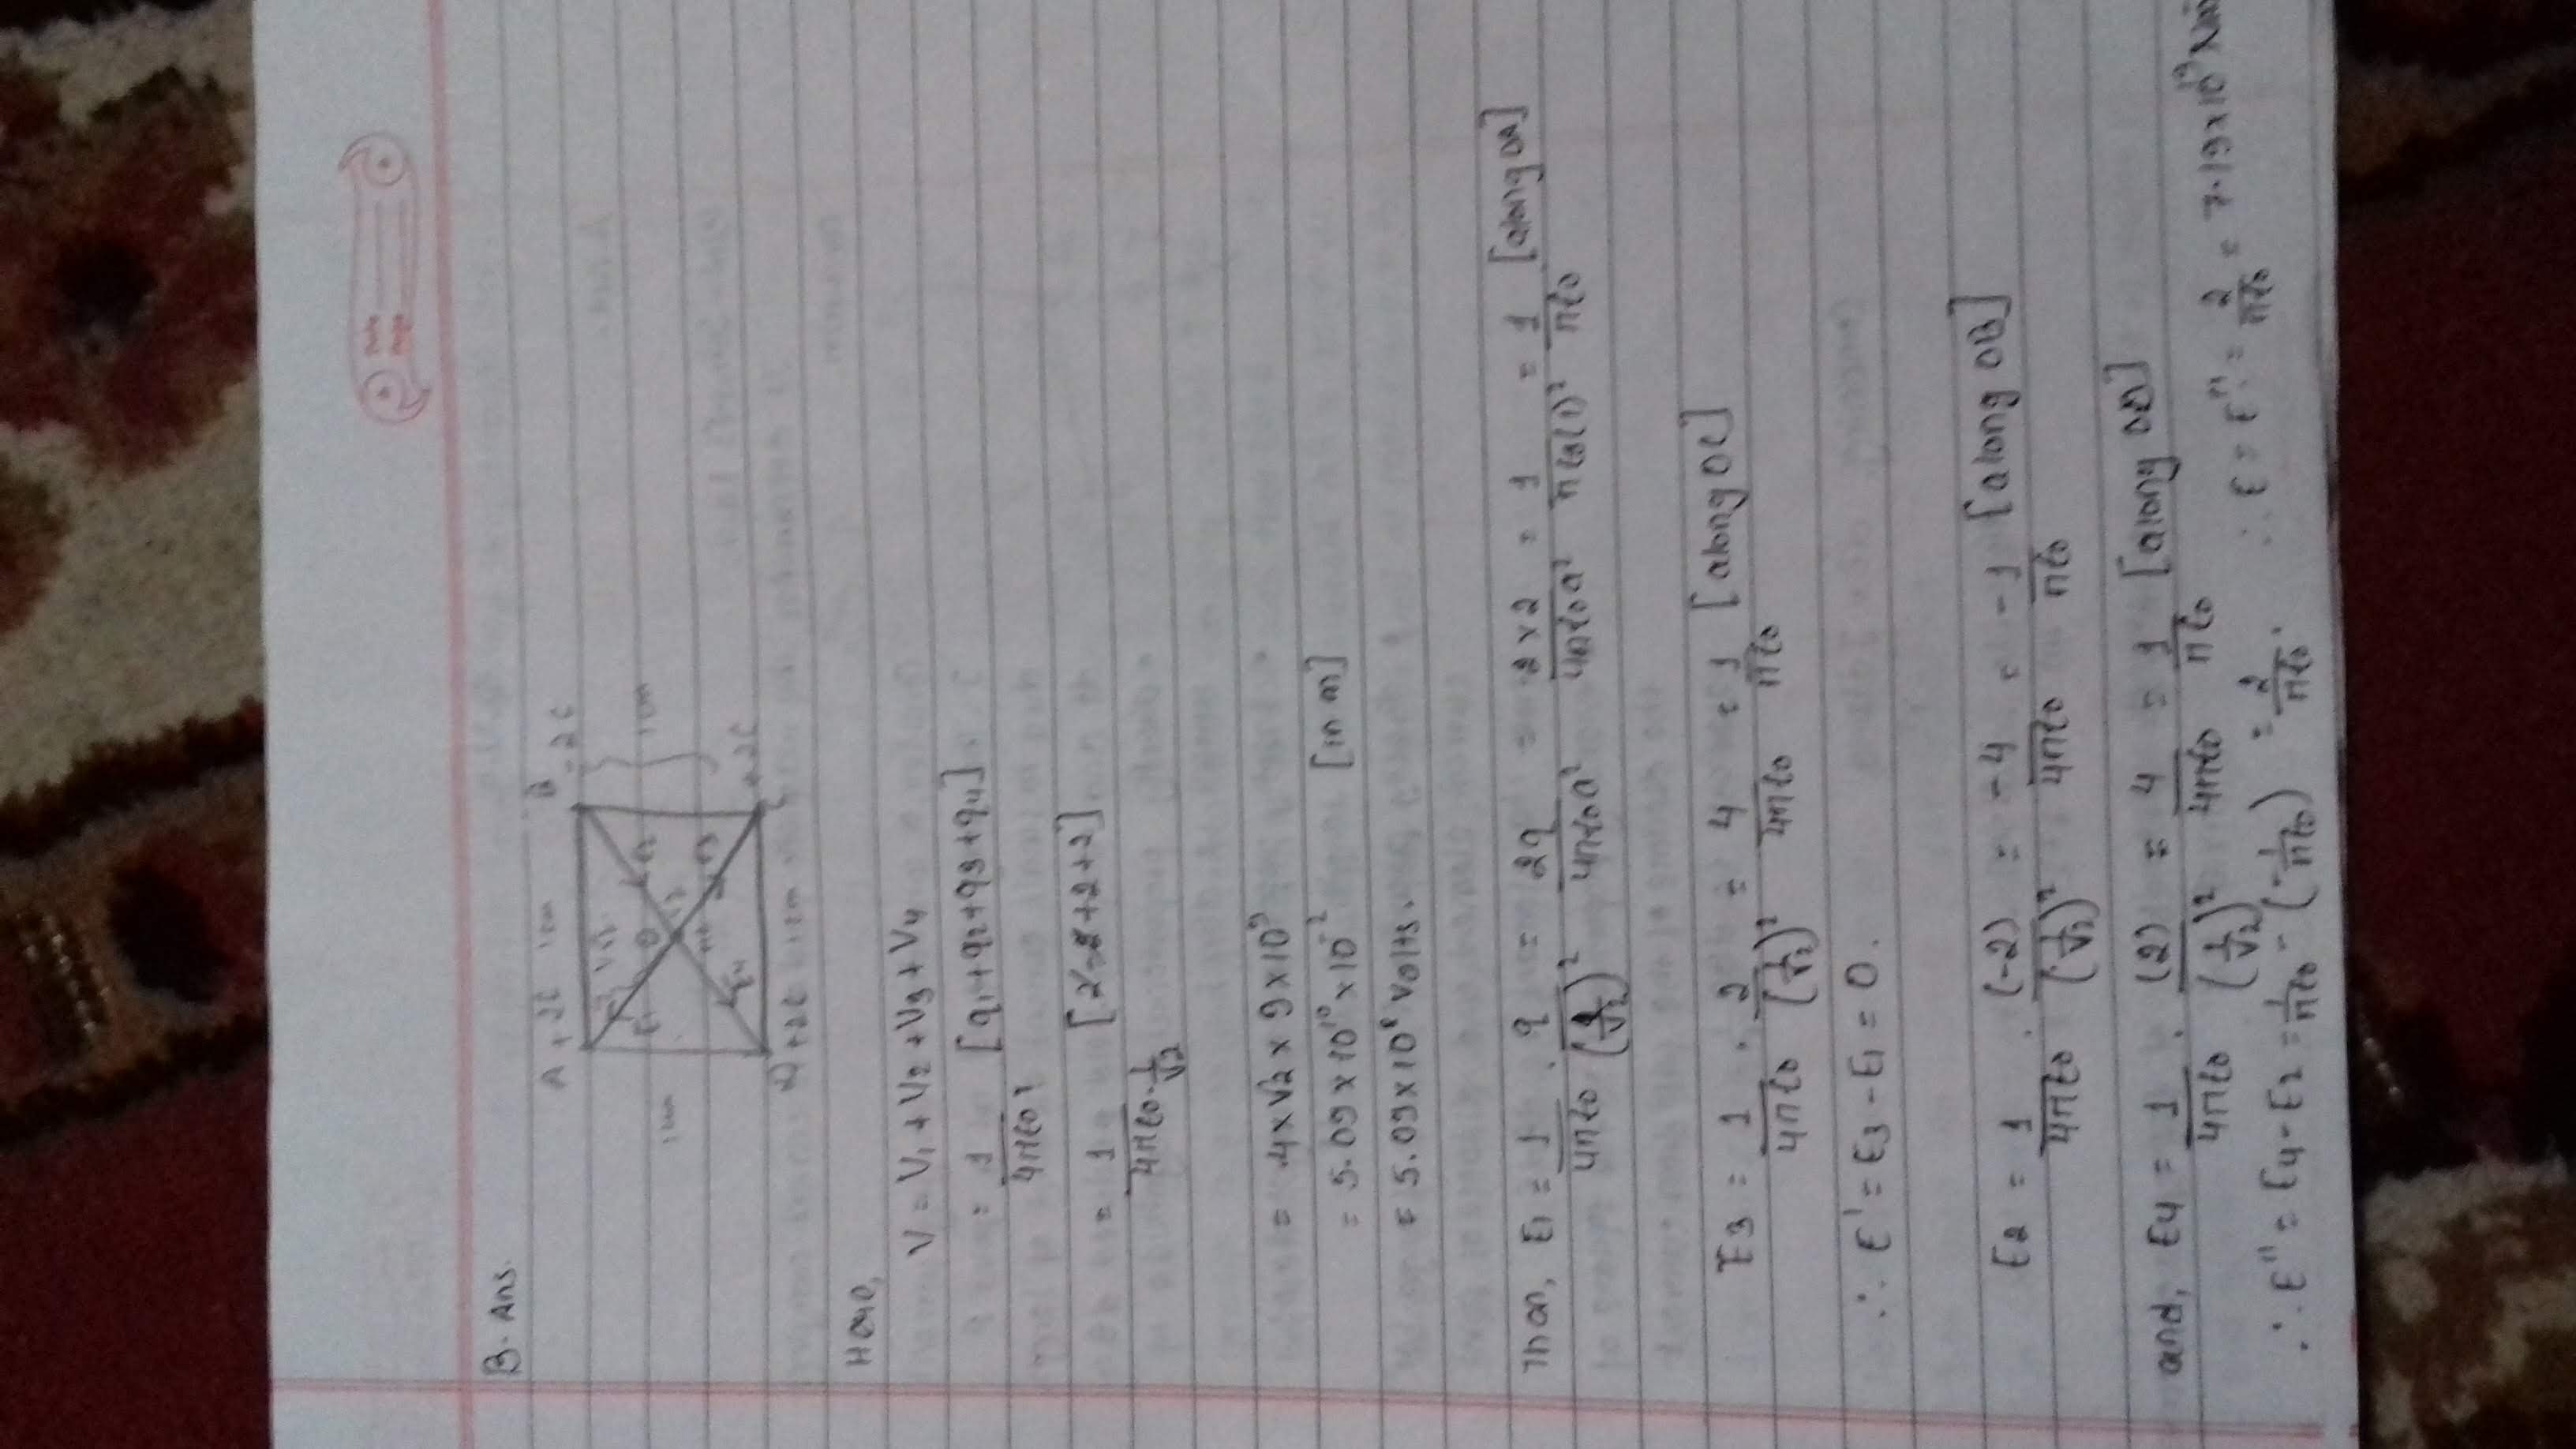 Date
Page
B. Ans.
A +2C 1cm B -2C
1/√2
E1 O E2
1cm 1cm
E4 E3
D +2C 1cm C +2C
Here,
V = V1 + V2 + V3 + V4
= 1/4πε0r [q1+q2+q3+q4]
= 1/4πε0·1/√2 [2-2+2+2]
= 4×√2 × 9×10⁹
= 5.09×10¹⁰×10⁻² [in m]
= 5.09×10⁸ volts.
Then, E1 = 1/4πε0 · q/(a/√2)² = 2q/4πε0a² = 2×2/4πε0a² = 1/πε0(1)² = 1/πε0 [along OA]
E3 = 1/4πε0 · 2/(1/√2)² = 4/4πε0 = 1/πε0 [along OC]
∴ E' = E3 - E1 = 0.
E2 = 1/4πε0 · (-2)/(1/√2)² = -4/4πε0 = -1/πε0 [along OB]
and, E4 = 1/4πε0 · (2)/(1/√2)² = 4/4πε0 = 1/πε0 [along OD]
∴ E" = E4 - E2 = 1/πε0 - (-1/πε0) = 2/πε0. ∴ E = E" = 2/πε0 = 7.19×10¹⁰